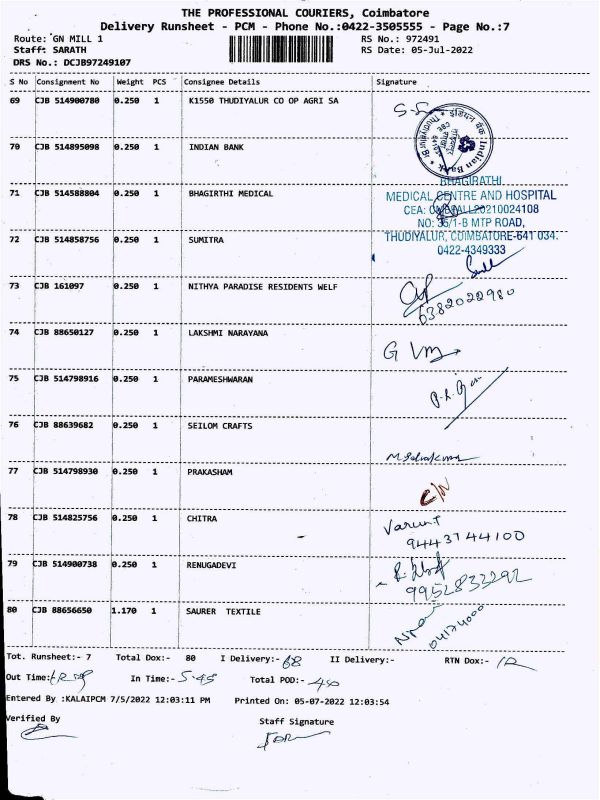 THE PROFESSIONAL COURIERS, Coimbatore
Delivery Runsheet - PCM - Phone No.:0422-3505555 - Page No.:7
Route: GN MILL 1 RS No.: 972491
Staff: SARATH RS Date: 05-Jul-2022
DRS No.: DCJB97249107
S No Consignment No Weight PCS Consignee Details Signature
69 CJB 514900780 0.250 1 K1550 THUDIYALUR CO OP AGRI SA
70 CJB 514895098 0.250 1 INDIAN BANK
Indian Bank
BHAGIRATHI
71 CJB 514588804 0.250 1 BHAGIRTHI MEDICAL MEDICAL CENTRE AND HOSPITAL
NO: 35/1-B MTP ROAD,
72 CJB 514858756 0.250 1 SUMITRA THUDIYALUR, COIMBATORE-641 034.
0422-4349333
73 CJB 161097 0.250 1 NITHYA PARADISE RESIDENTS WELF
6382022980
74 CJB 88650127 0.250 1 LAKSHMI NARAYANA
75 CJB 514798916 0.250 1 PARAMESHWARAN
76 CJB 88639682 0.250 1 SEILOM CRAFTS
77 CJB 514798930 0.250 1 PRAKASHAM
C/N
78 CJB 514825756 0.250 1 CHITRA Varun T
9443744100
79 CJB 514900738 0.250 1 RENUGADEVI
9952833292
80 CJB 88656650 1.170 1 SAURER TEXTILE
Tot. Runsheet:- 7 Total Dox:- 80 I Delivery:- 68 II Delivery:- RTN Dox:- 12
Out Time:- In Time:- 5-45 Total POD:- 40
Entered By :KALAIPCM 7/5/2022 12:03:11 PM Printed On: 05-07-2022 12:03:54
Verified By Staff Signature